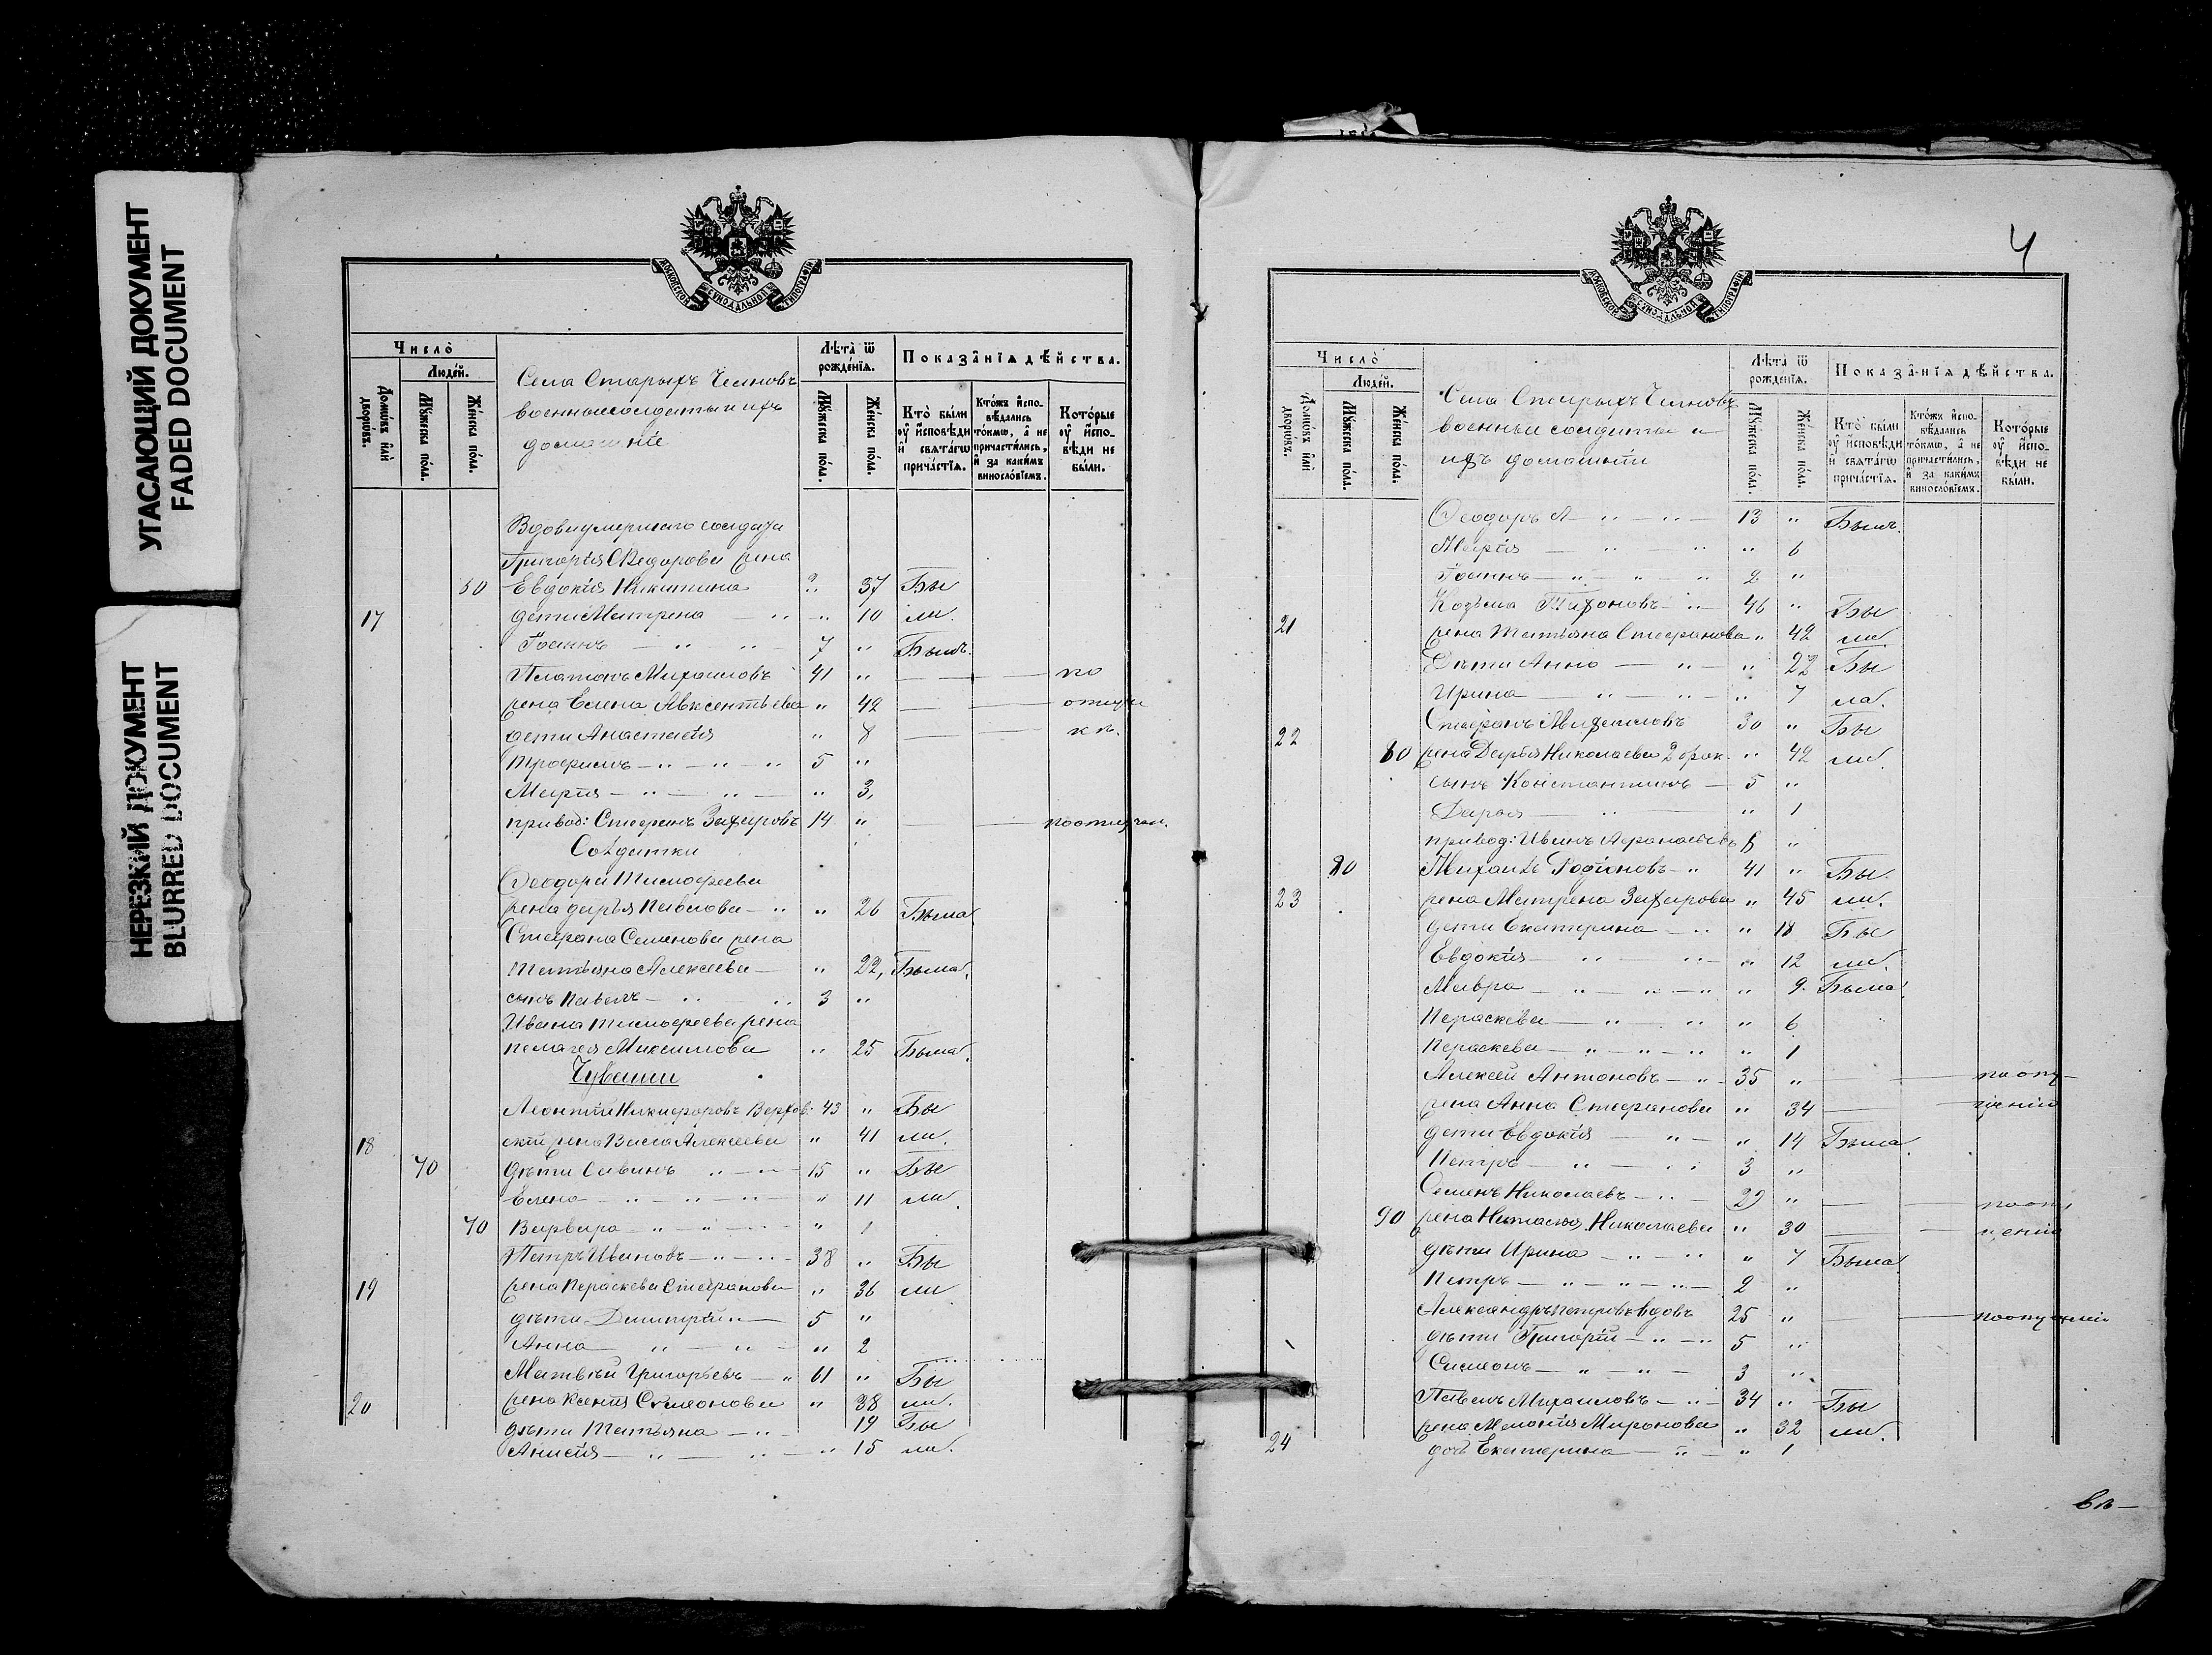 УГАСАЮЩИЙ ДОКУМЕНТ
FADED DOCUMENT
НЕРЕЗКИЙ ДОКУМЕНТ
BLURRED DOCUMENT
МОСКОВСКОЙ СИНОДАЛЬНОЙ ТИПОГРАФІИ
Число̀
Людéй.
Домѡ́въ и҆лѝ дворѡ́въ.
Мꙋ́жеска по́ла.
Же́нска по́ла.
Села Старыхъ Челновъ
военные солдаты и ихъ
домашніе
Лѣта̀ ѿ рожде́нїѧ.
Мꙋ́жеска по́ла.
Же́нска по́ла.
Показа̑нїѧ дѣ́йства.
Кто̀ бы́ли ᲂу҆ и҆сповѣ́ди и҆ свѧта́гѡ прича́стїѧ.
Кто́жъ и҆спо-вѣ́дались то́кмѡ, а҆ не причасти́лись, и҆ за каки́мъ винословїемъ.
Кото́рые ᲂу҆ и҆спо-вѣ́ди не бы́ли.
Вдова умершаго солдата
Григорія Ѳедорова жена
60 Евдокія Никитина " 37 Бы
17 дети Матрена — " " 10 ли.
Іоаннъ — " — " — 7 " Былъ.
Платонъ Михаиловъ 41 " — — по
жена Елена Авксентьева " 42 — — отлуч
дети Анастасія " 8 — —
Трофимъ — " — " — " 5 "
Марія — " — " — " 3,
привод: Стефанъ Захаровъ 14 " — — по отлучк.
Солдатки
Ѳеодора Тимофеева
жена дарья Павлова — " " 26 Была
Стефана Семенова жена
Татьяна Алексеева — " 22, Была.
сынъ Павелъ — " " 3 "
Ивана Тимофеева жена
пелагея Максимова " 25 Была.
Чуваши
Леонтій Никифоровъ Верхов- 43 " Бы
18 скій жена Васса Алексеева " 41 ли.
70 дѣти Савинъ " — " — 15 " Бы
Елена — " — " — " — " 11 ли
70 Варвара — " — " — " 1
Петръ Ивановъ — " — " — 38 " Бы
19 жена Параскева Стефанова " 36 ли
дѣти Димитрій " — 5 "
Анна — " — " — " 2
Матвѣй Григорьевъ — " 61 " Бы
20 жена Ксенія Симеонова " 38 ли.
дѣти Татьяна — " — 19 Бы
Анисія — " — " — " 15 ли.
4
МОСКОВСКОЙ СИНОДАЛЬНОЙ ТИПОГРАФІИ
Число̀
Людéй.
Домѡ́въ и҆лѝ дворѡ́въ.
Мꙋ́жеска по́ла.
Же́нска по́ла.
Села Старыхъ Челновъ
военные солдаты и
ихъ домашніи
Лѣта̀ ѿ рожде́нїѧ.
Мꙋ́жеска по́ла.
Же́нска по́ла.
Показа̑нїѧ дѣ́йства.
Кто̀ бы́ли ᲂу҆ и҆сповѣ́ди и҆ свѧта́гѡ прича́стїѧ.
Кто́жъ и҆спо-вѣ́дались то́кмѡ, а҆ не причасти́лись, и҆ за каки́мъ винословїемъ.
Кото́рые ᲂу҆ и҆спо-вѣ́ди не бы́ли.
Ѳеодоръ — " — " — 13 " Былъ.
Марія — " — " " 6
Іоаннъ — " — " — " 2 "
Козьма Тихоновъ — " — 46 " Бы
21 жена Татьяна Стефанова " 42 ли
Дѣти Анна — " — " 22 Бы
Ирина — " — " — " 7 ла.
22 Стефанъ Михаиловъ 30 " Бы
80 жена Дарья Николаева 2 брак. " 42 ли.
сынъ Константинъ — 5 "
Дарья — " — " 1
привод: Иванъ Афанасьевъ 8 "
80 Михаилъ Родіоновъ — " 41 " Бы.
23 жена Матрена Захарова " 45 ли.
дети Екатерина — " " 18 Бы
Евдокія — " — " — " 12 ли.
Мавра — " — " — " " 9. Была.
Параскева — " — " " 6
Параскева — " — " — " " 1
Алексей Антоновъ — " — 35 " — — по отлу-
жена Анна Стефанова " 34 — — ченію
дети Евдокія — " — " 14 Была.
Петръ — " — " 3 "
Семенъ Николаевъ — " — 29 " — —
90 жена Наталья Николаева " 30 — —
дѣти Ирина — " — " " 7 Была
Петръ — " — " — " — 2 "
Александръ Петровъ вдовъ 25 " — —
дѣти Григорій — " — " 5 "
Симеонъ — " — " — 3 "
Павелъ Михаиловъ — " — 34 " Бы
жена Меланія Миронова " 32 ли.
24 дочь Екатерина — " — " 1